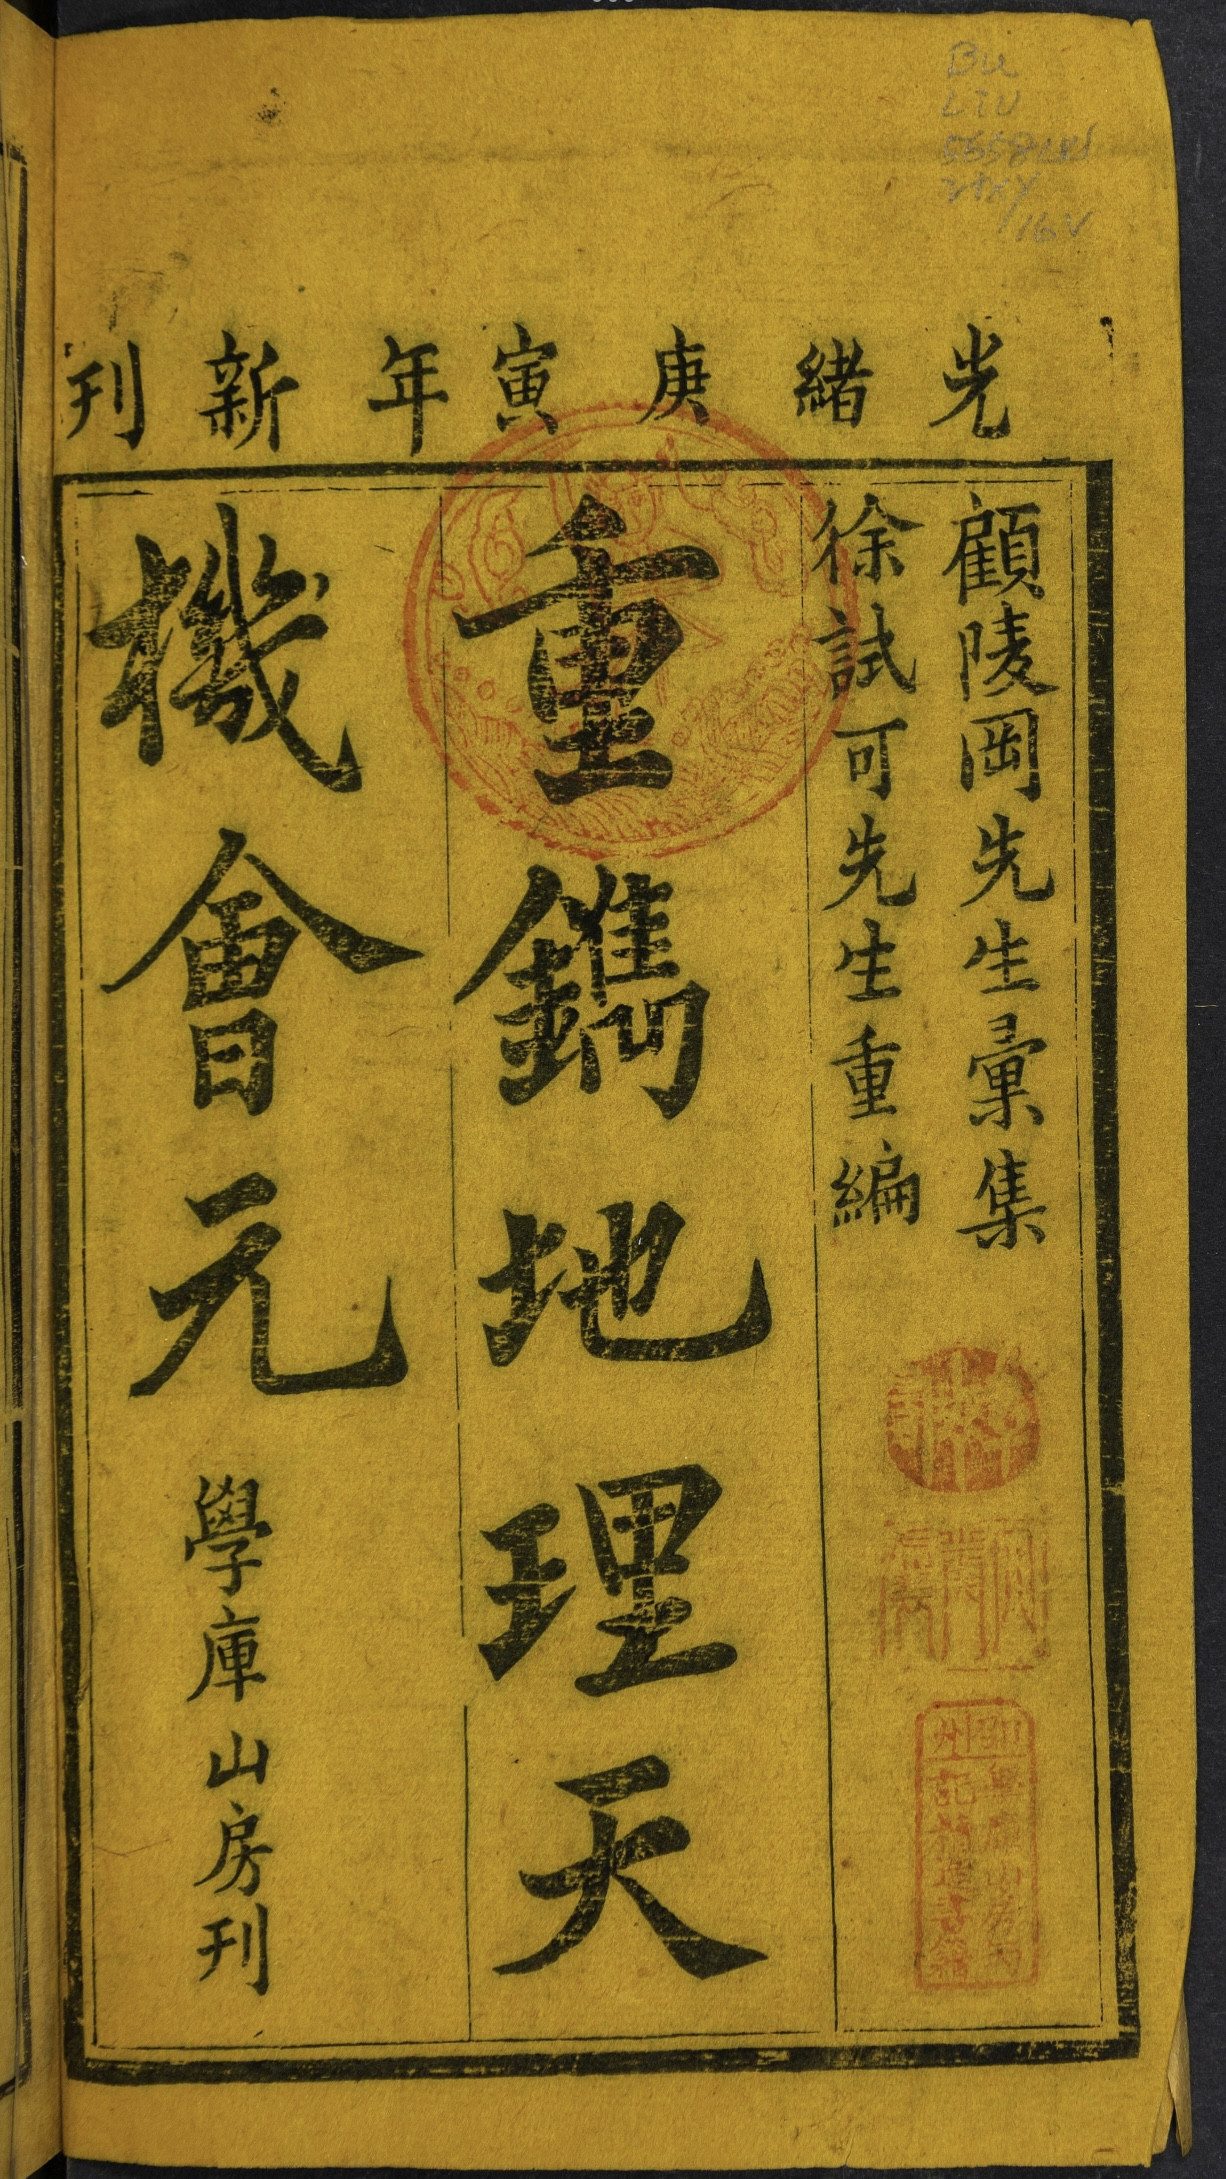 光緒庚寅年新刊
顧陵岡先生彙集
徐試可先生重編
重鐫地理天
機會元
學庫山房刊
Bu
LIU